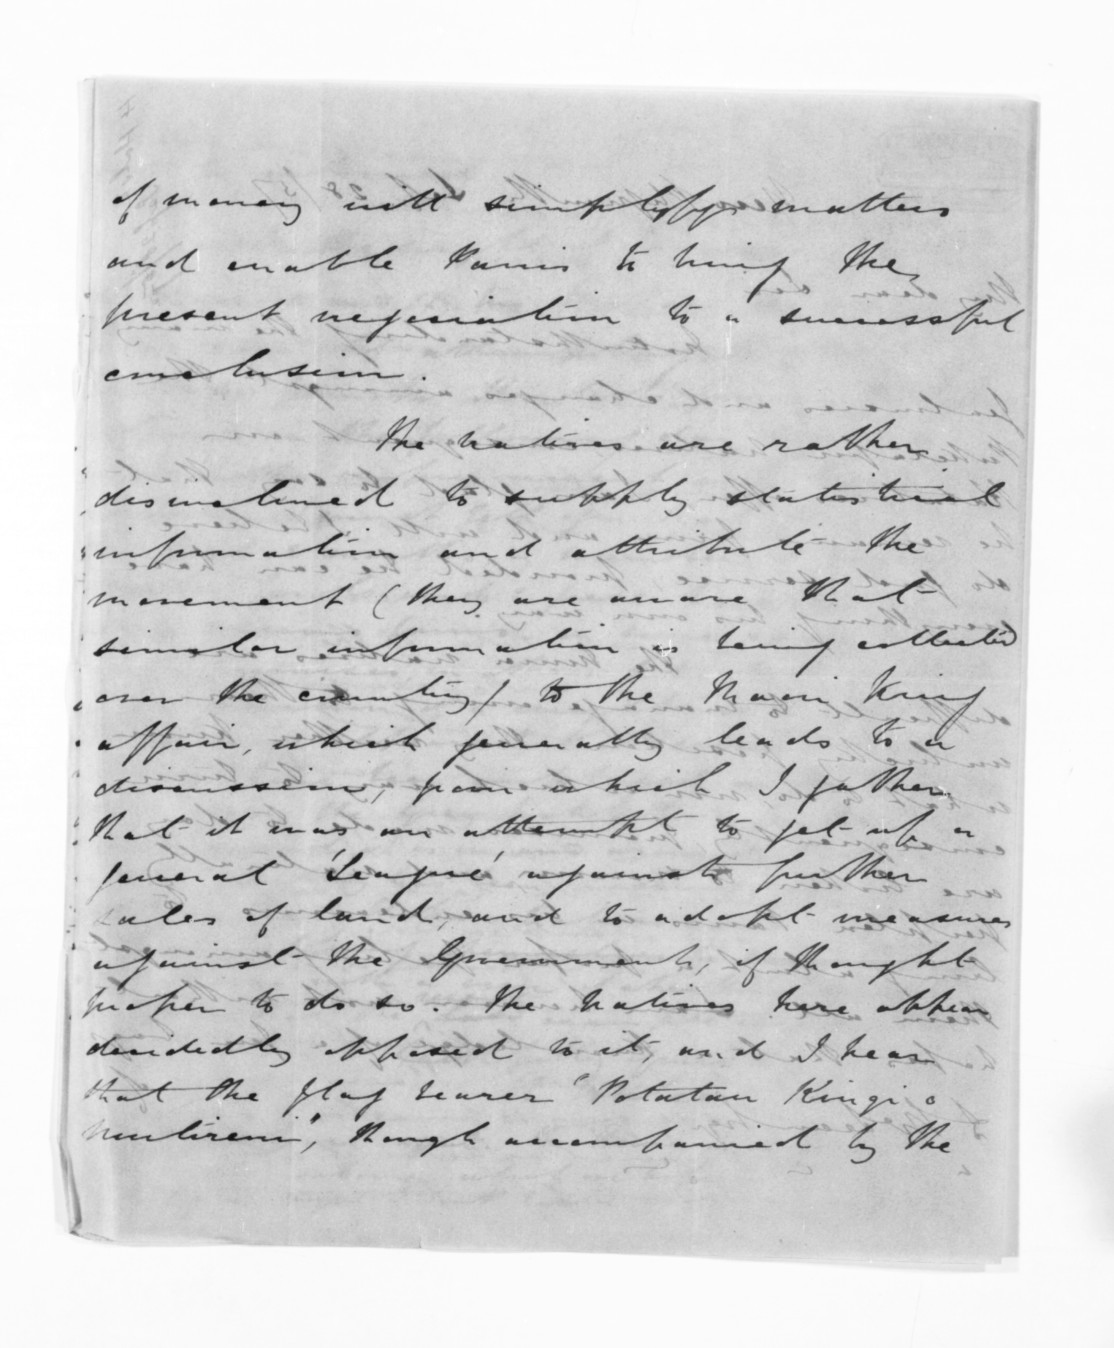 of money will simplyfy matters
and enable Parris to bring the
present negociation to a successful
conclusion.
The natives are rather
disinclined to supply statistical
information and attribute the
movement (they are aware that
similar information is being collected
over the country) to the Maori King
affair, which generally leads to a
discussion, from which I gather
that it was an attempt to get up a
general 'League' against further
sales of land, and to adopt measures
against the Government, if thought
proper to do so. The natives here appear
decidedly opposed to it, and I hear
that the flag bearer "Potatau Kingi o
Niutireni", though accompanied by the